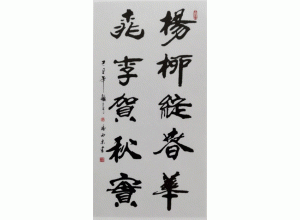 楊柳綻春華
桃李賀秋實